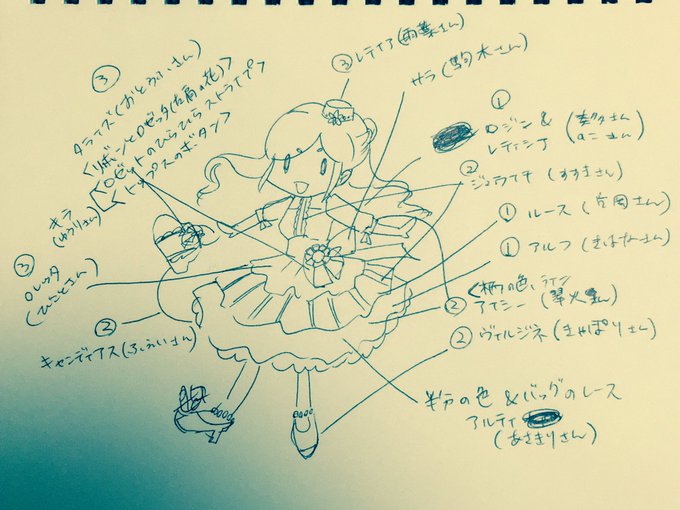 ③
クライズ(おとうふさん)
<リボンとロゼッタ(右肩の花)>
<ロゼットのひらひらストライプ>
<トップスのボタン>
キラ
(ゆうりさん)
③レティア(雨葉さん)
サラ(駒木さん)
①
ロジン&
レティシナ
②
ジュウイチ(すずきさん)
①ルース(笠岡さん)
①アルフ(きはなさん)
<柄の色、ライン
②アイシー(翠火さん)
②ヴィルジネ(きゃぽりさん)
半分の色&バッグのレース
アルティ
(あさきりさん)
③
ロレッタ
(ひことさん)
②
キャンディアス(ふふいさん)